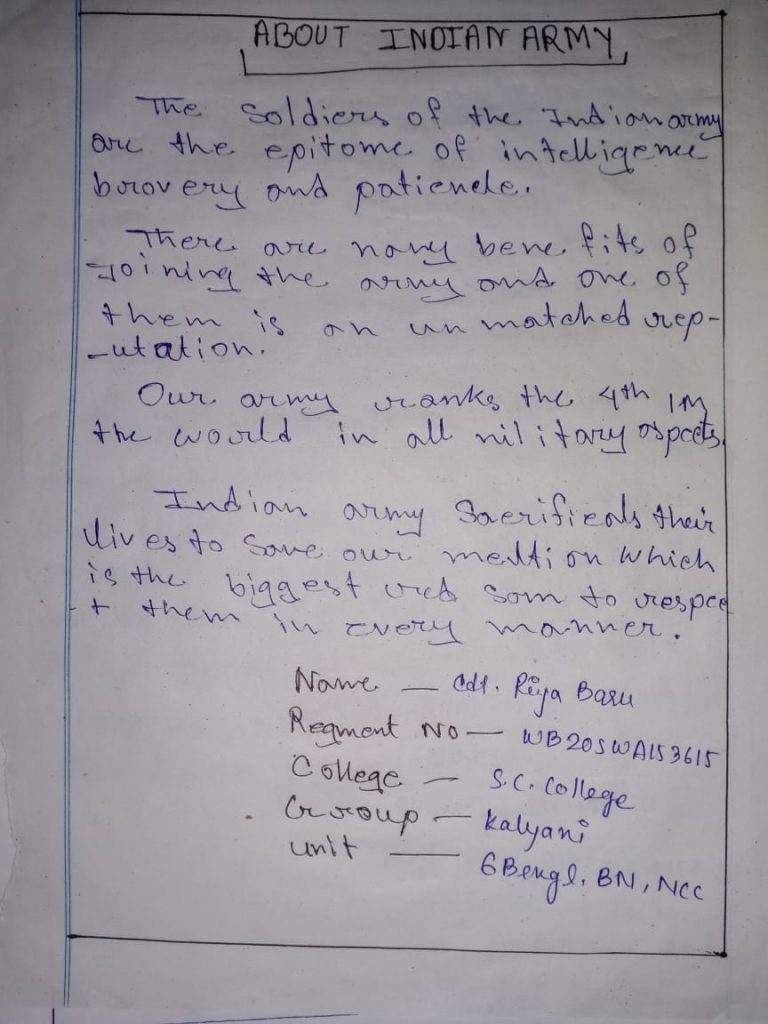 ABOUT INDIAN ARMY
The Soldiers of the Indian army
are the epitome of intelligence
brovery and patienele.
There are nany bene fits of
Joining the army and one of
them is an un matched rep-
-utation.
Our army ranks the 4th IM
the world in all nilitary aspects.
Indian army Sacrificals their
lives to Save our medtion which
is the biggest red som to respec
t them in every manner.
Name - Cdt. Riya Basu
Regment No - WB20SWA153615
College - S.C. College
Group - Kalyani
unit - 6 Bengl. BN, NCC